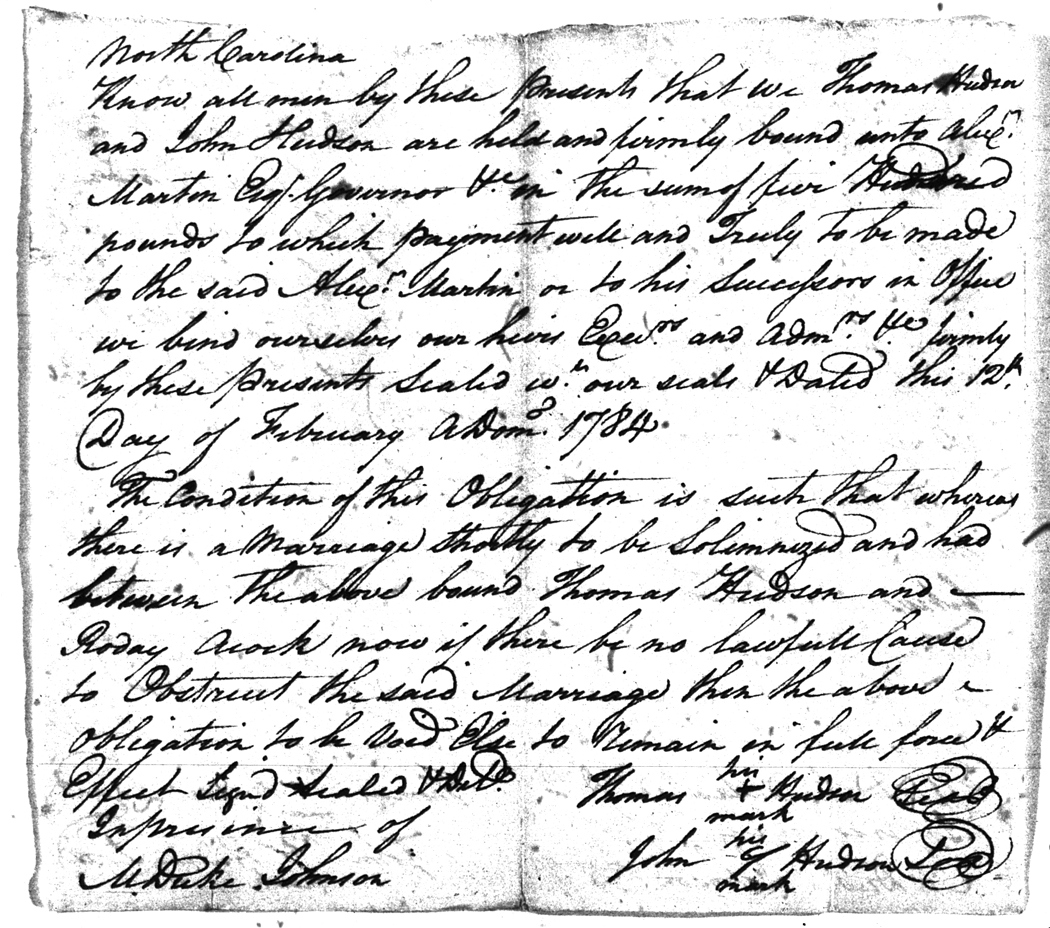 North Carolina
Know all men by these Presents that we Thomas Hudson
and John Hudson are held and firmly bound unto Alexr.
Martin Esqr. Governor &c in the sum of five Hundred
pounds to which payment well and Truly to be made
to the said Alexr. Martin or to his Successors in Office
we bind ourselves our heirs Execrs. and Admrs. &c firmly
by these Presents Sealed wth. our seals & Dated this 12th.
Day of February ADomo. 1784.
The Condition of this Obligattion is such that whereas
there is a Marriage shortly to be Solemnized and had
between the above bound Thomas Hudson and
Roday Acock now if there be no lawfull Cause
to Obstruct the said Marriage then the above
obligation to be Void Else to Remain in full force &
Effect Signd Sealed & Deld. Thomas his + mark Hudson Seal
In presince of
John his mark Hudson Seal
M Duke Johnson